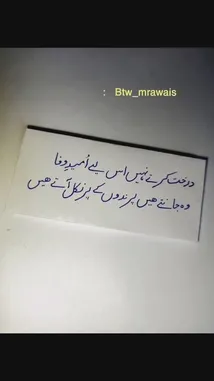 : Btw_mrawais
درخت کرتے نہیں اس لیے اُمیدِ وفا
وہ جانتے ھیں پرندوں کے پر نکل آتے ھیں